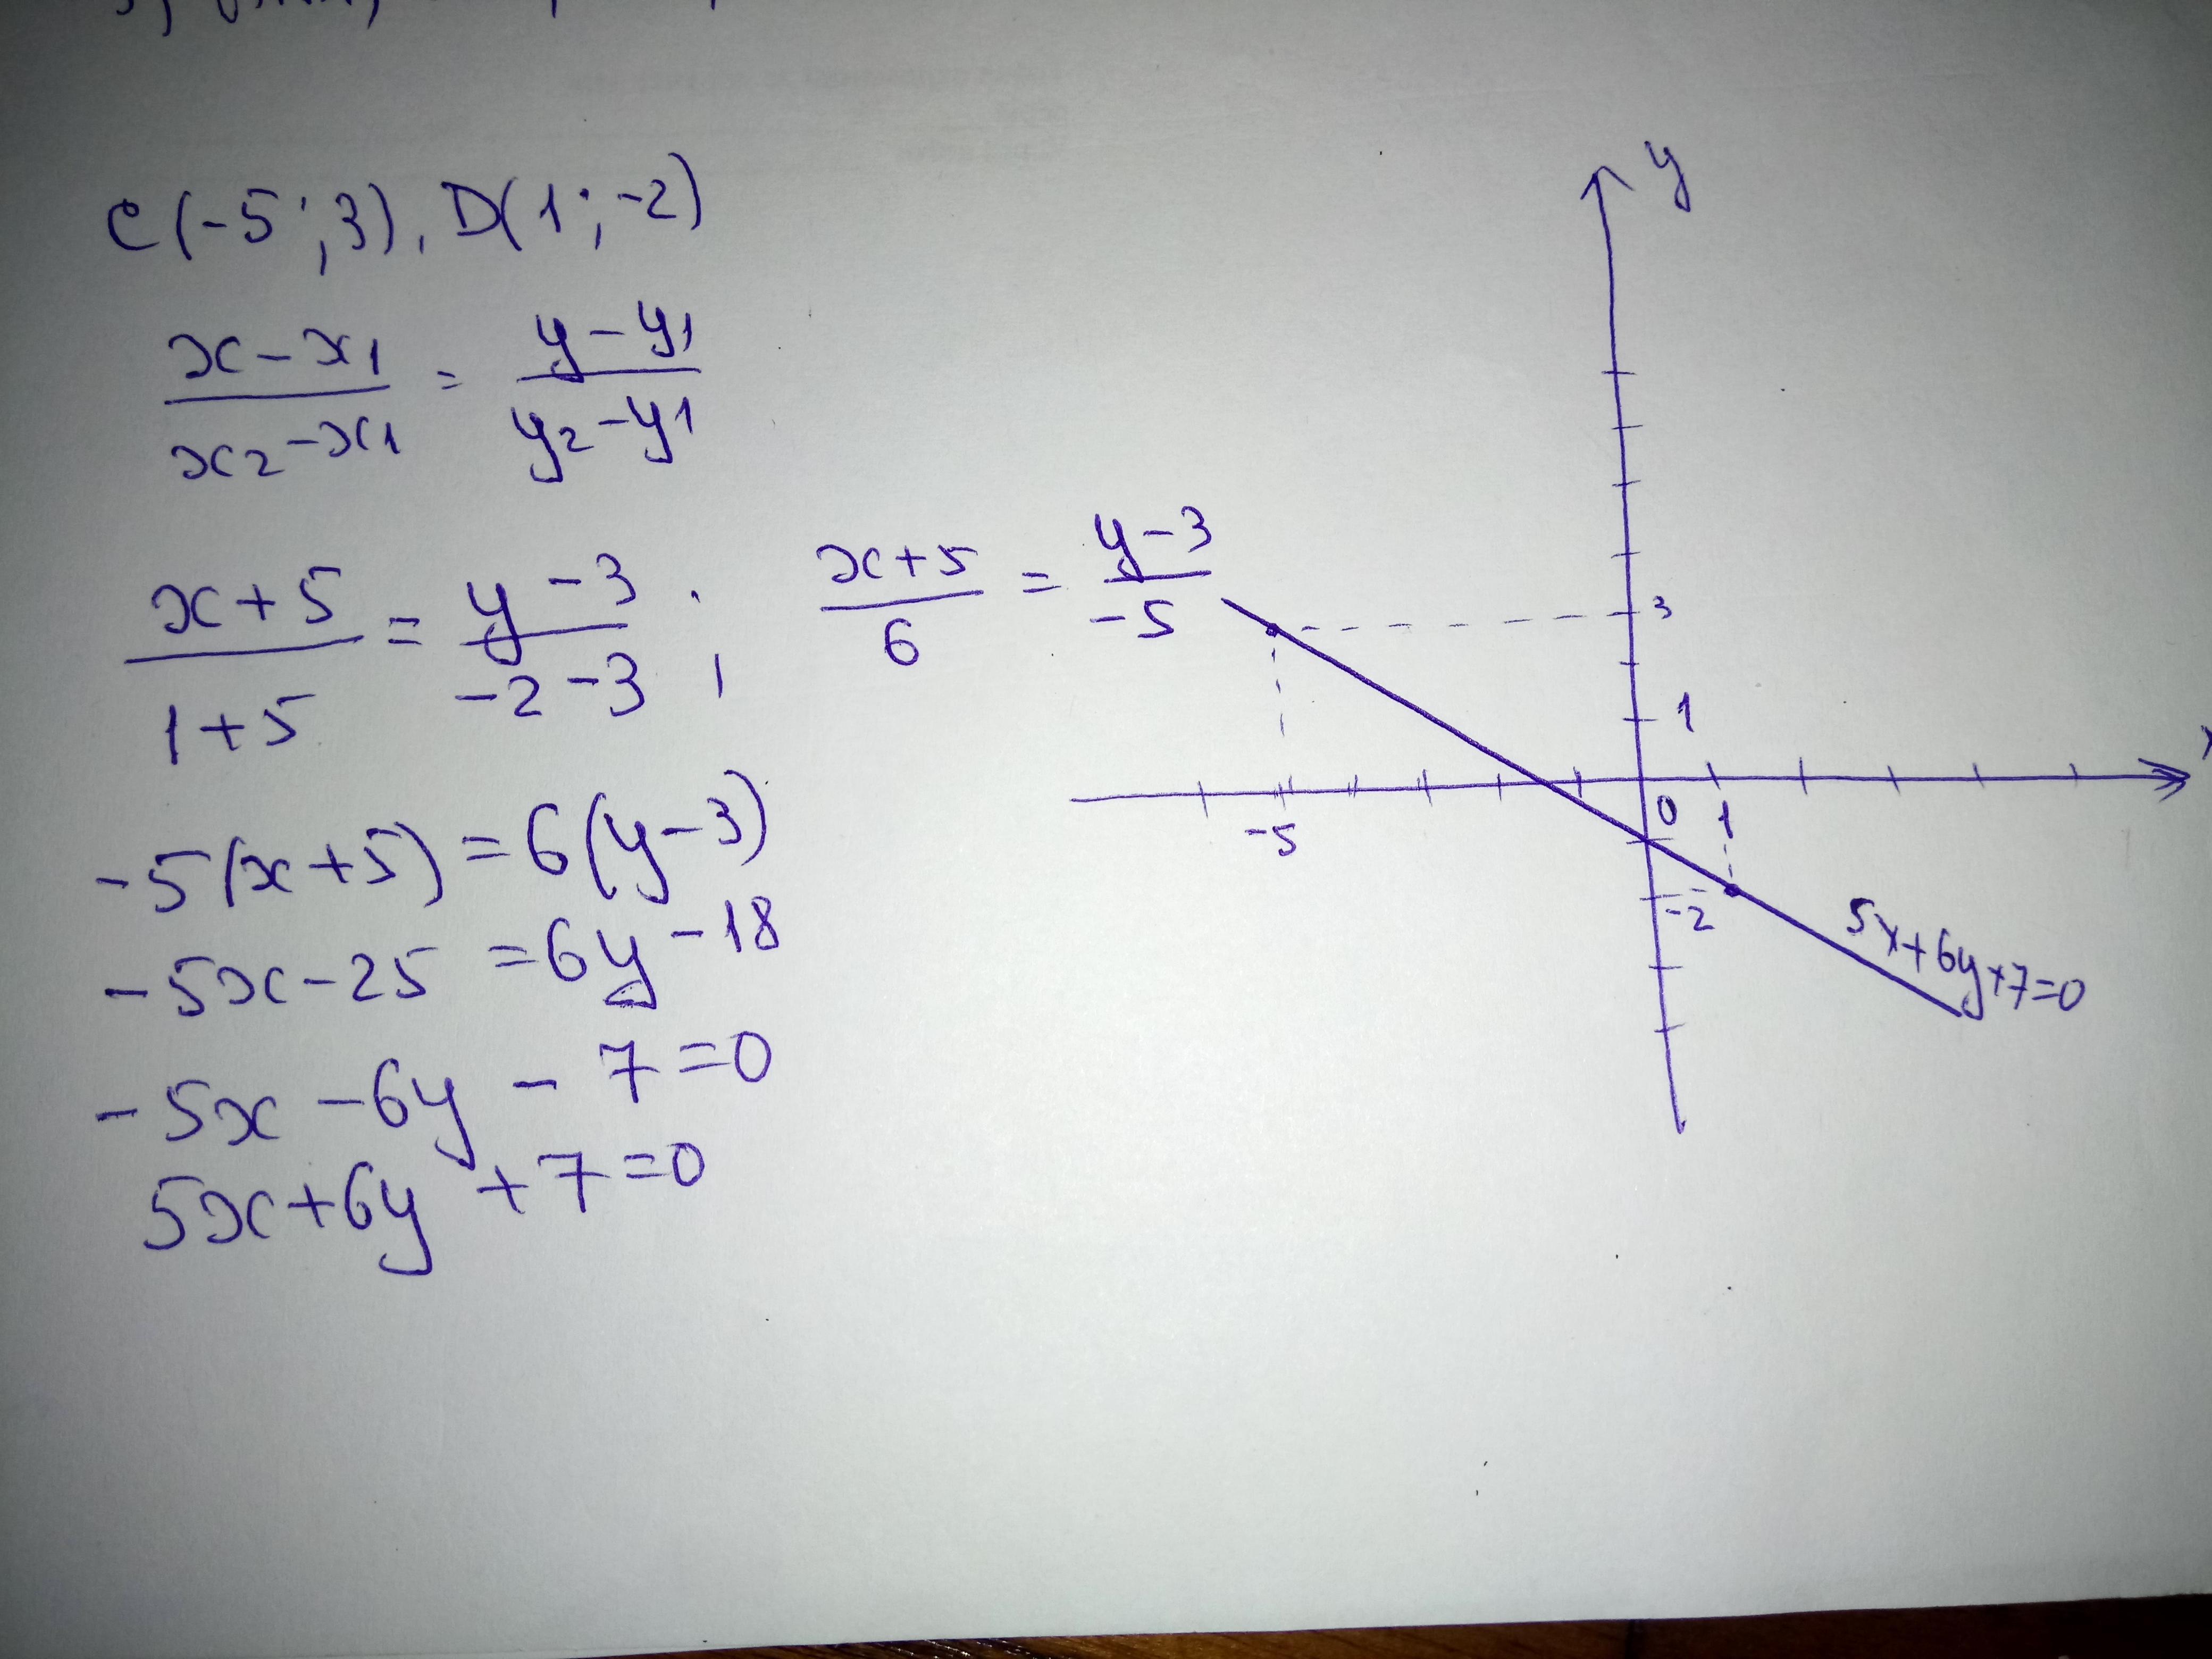 C(-5; 3), D(1; -2)
x-x1 / x2-x1 = y-y1 / y2-y1
x+5 / 1+5 = y-3 / -2-3 ; x+5 / 6 = y-3 / -5
-5(x+5) = 6(y-3)
-5x-25 = 6y-18
-5x-6y-7=0
5x+6y+7=0
y
3
1
x
-5
0
1
-2
5x+6y+7=0